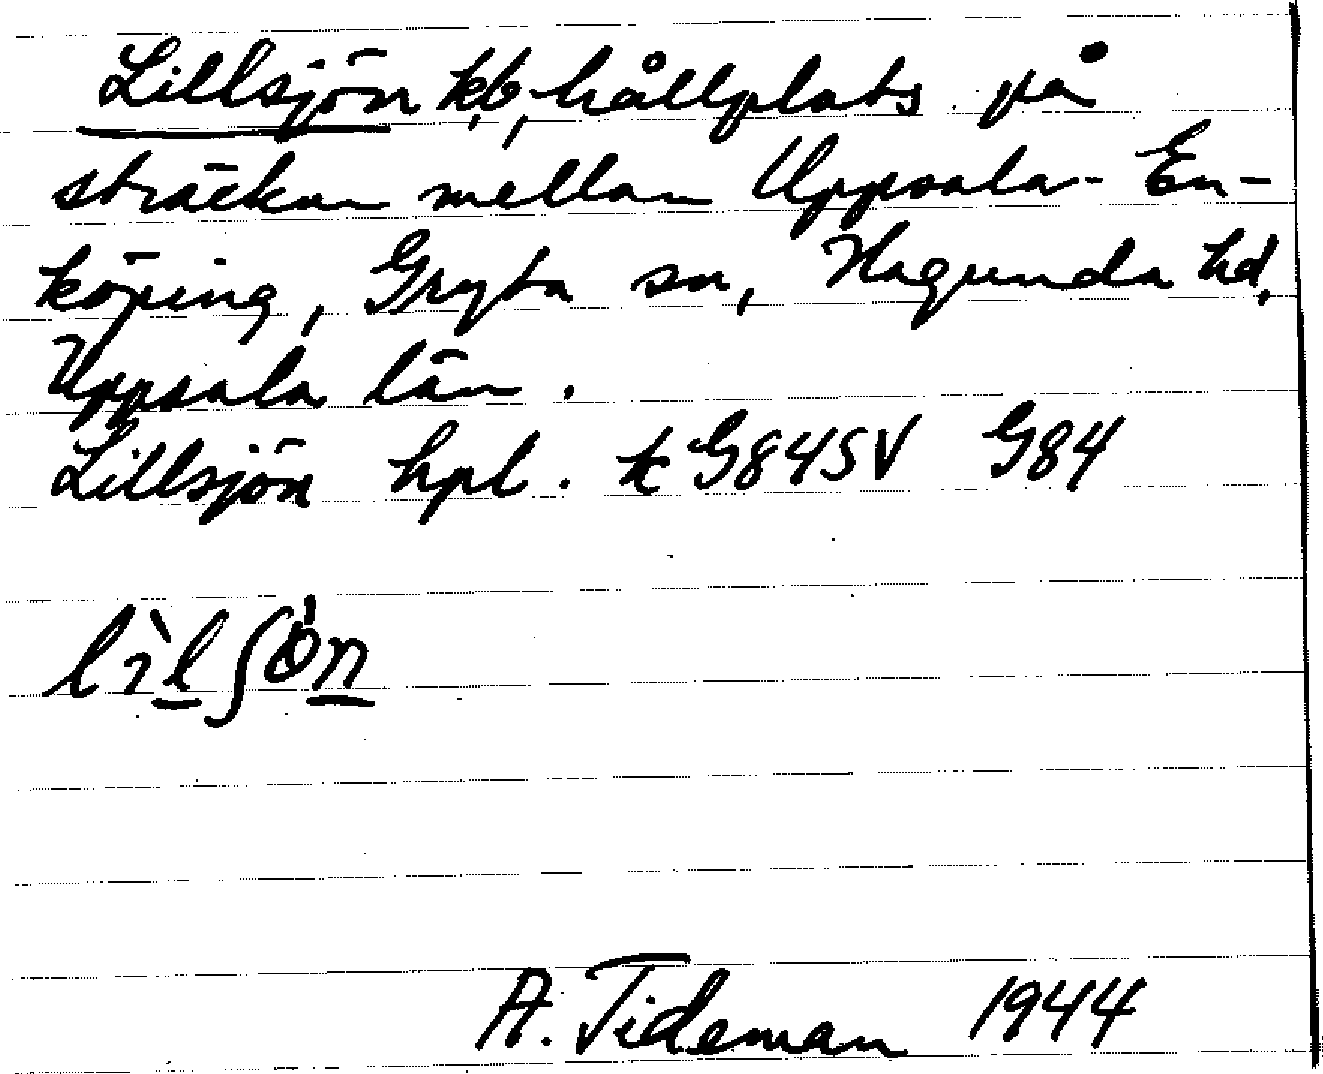 Lillsjön kb, hållplats på
sträckan mellan Uppsala - En-
köping, Gryta sn, Hagunda hd,
Uppsala län.
Lillsjön hpl. k G84SV G84
A. Tideman 1944